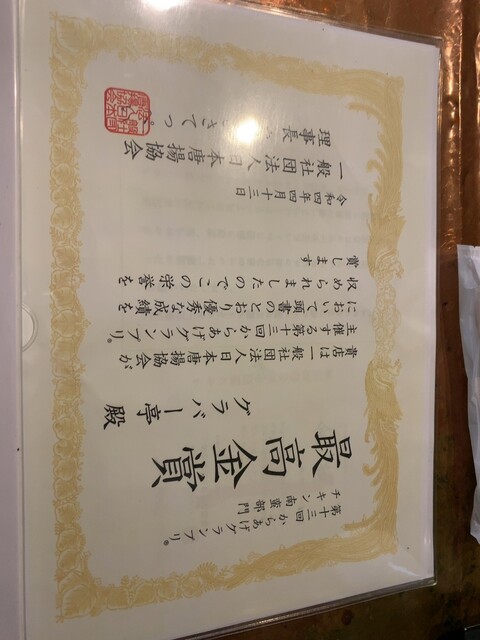 第十三回 からあげグランプリ®
チキン南蛮部門
最高金賞
グラバー亭 殿
貴店は一般社団法人日本唐揚協会が
主催する第十三回からあげグランプリ®
において頭書のとおり優秀な成績を
収められましたのでこの栄誉を
賞します
令和四年四月十三日
一般社団法人日本唐揚協会
理事長